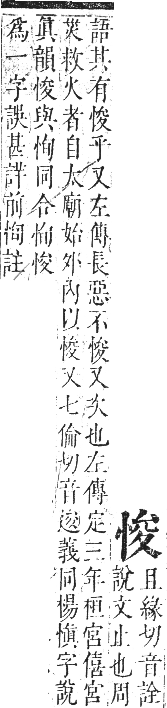 悛
且緣切音詮
說文止也周
語其有悛乎又左傳長惡不悛又次也左傳定三年桓宮僖宮
災救火者自大廟始外內以悛又七倫切音逡義同楊愼字說
眞韻悛與恂同合恂悛
爲一字誤甚詳前恂註